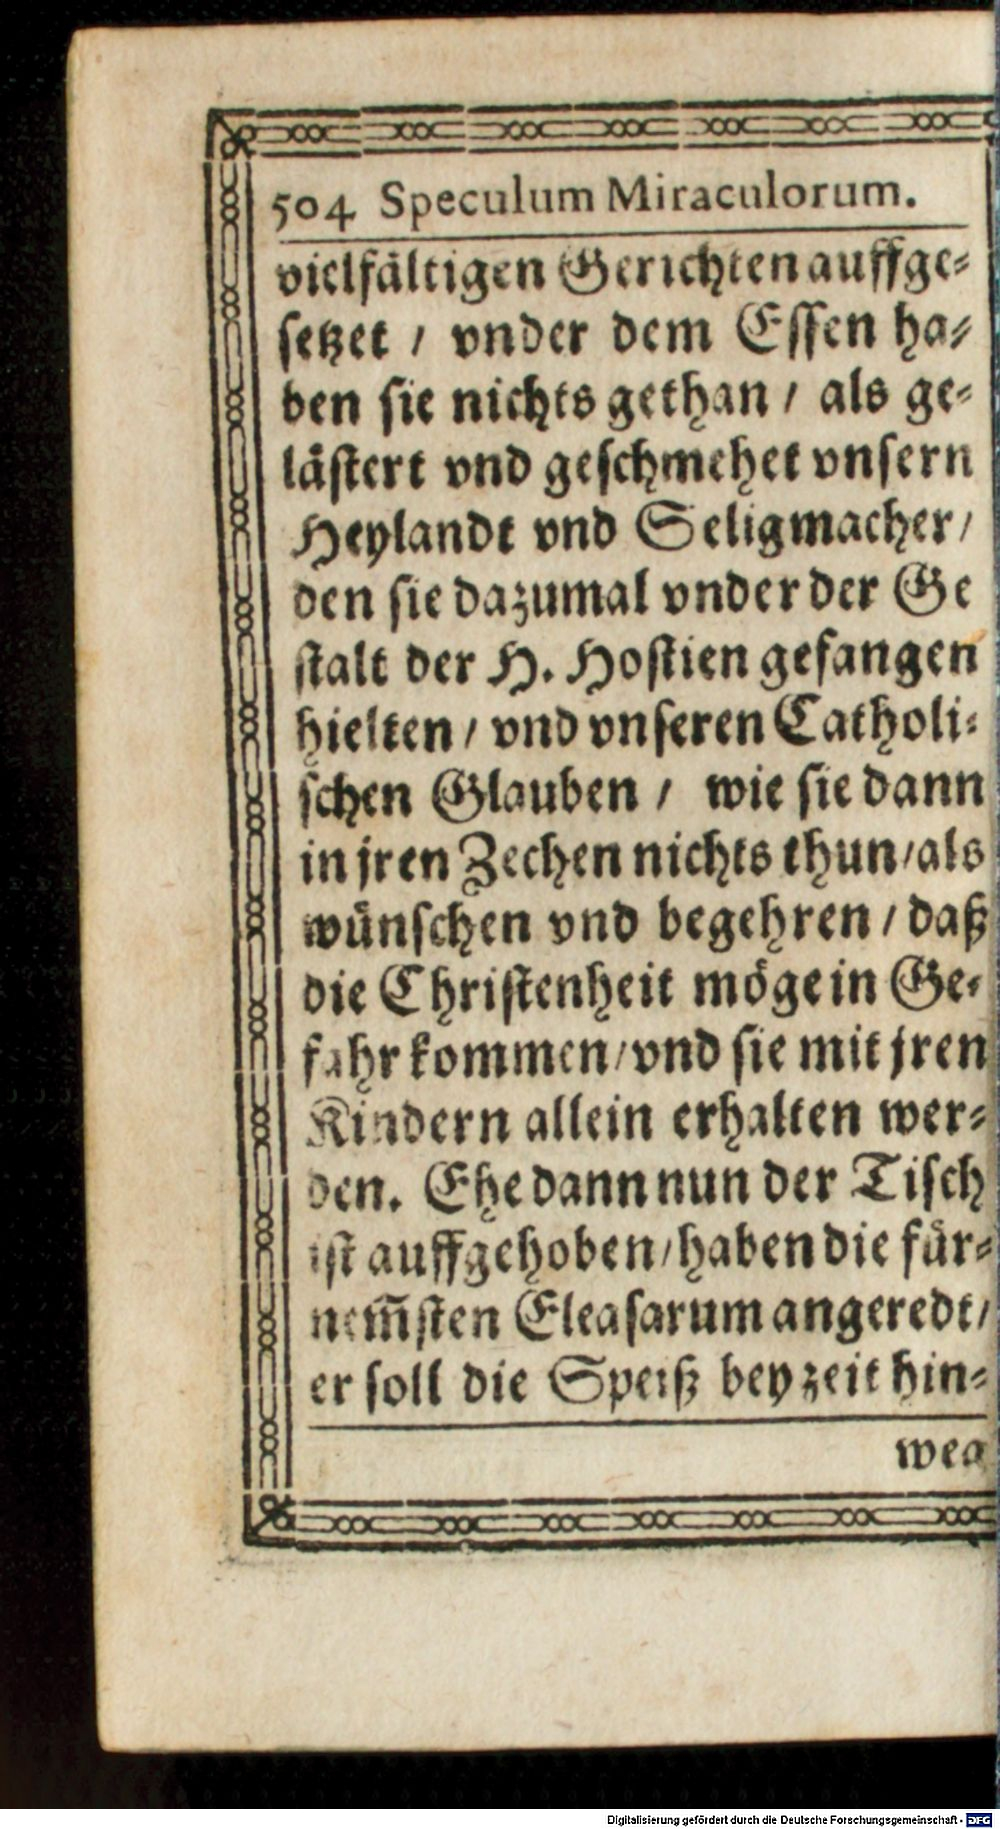 504 Speculum Miraculorum.
vielfältigen Gerichten auffge⸗
setzet / vnder dem Essen ha⸗
ben sie nichts gethan / als ge⸗
lästert vnd geschmehet vnsern
Heylandt vnd Seligmacher /
den sie dazumal vnder der Ge
stalt der H. Hostien gefangen
hielten / vnd vnseren Catholi⸗
schen Glauben / wie sie dann
in jren Zechen nichts thun / als
wünschen vnd begehren / daß
die Christenheit möge in Ge⸗
fahr kommen / vnd sie mit jren
Kindern allein erhalten wer⸗
den. Ehe dann nun der Tisch
ist auffgehoben / haben die für⸗
nem̃sten Eleasarum angeredt /
er soll die Speiß bey zeit hin⸗
weg
Digitalisierung gefördert durch die Deutsche Forschungsgemeinschaft - DFG